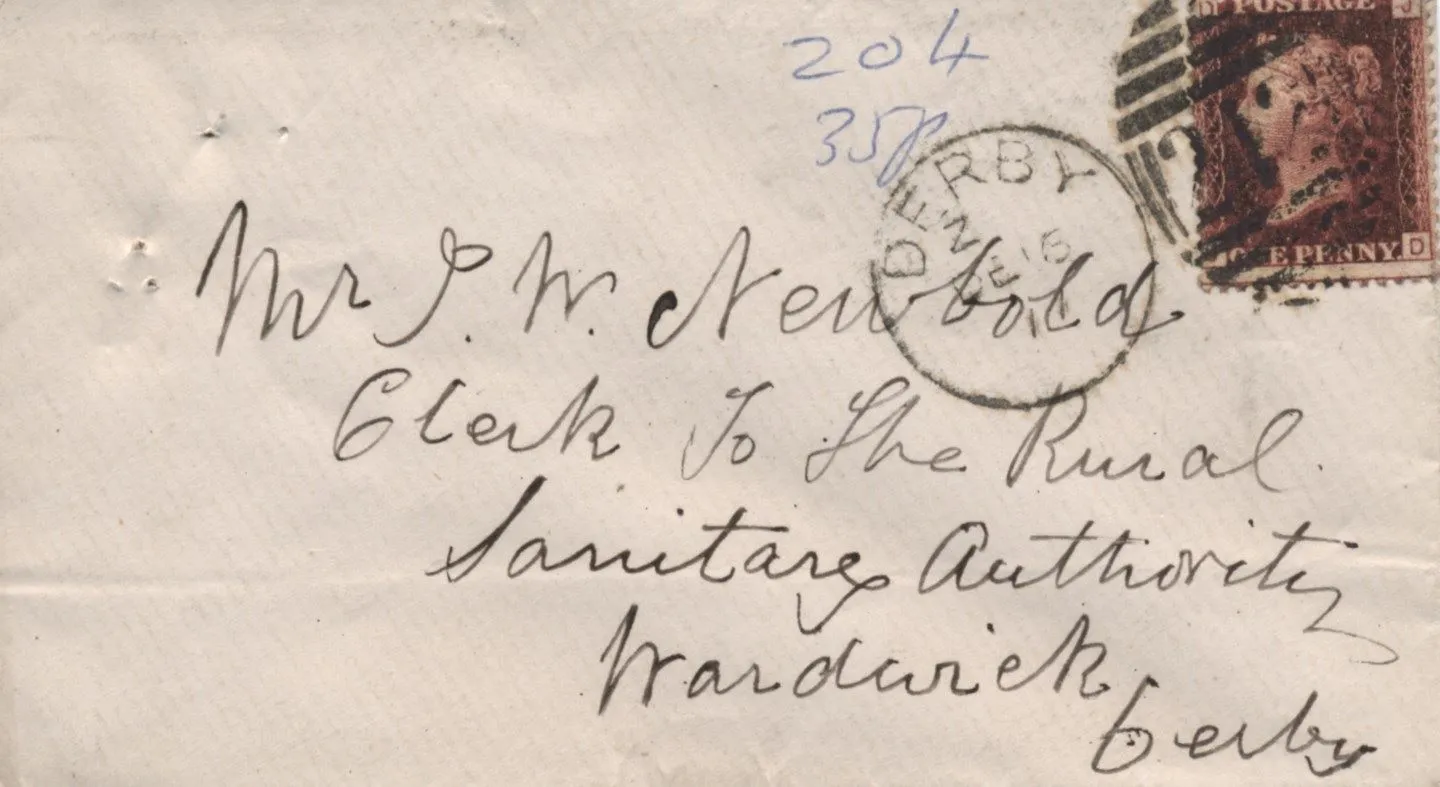 204
35p
POSTAGE J
ONE PENNY. D
DERBY
DE 16
Mr J. W. Newbold
Clerk To The Rural
Sanitary Authority
Wardwick
Derby